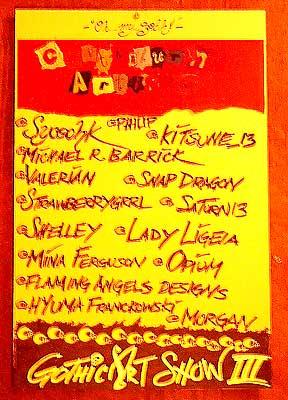 Philip
Kitsune_13
Michael R. Barrick
Valerian Snap Dragon
Strawberrygrrl Saturn13
Shelley Lady Ligeia
Miina Ferguson Opium
Flaming Angels Designs
Hyuma Franckowski
Morgan
Gothic Art Show III